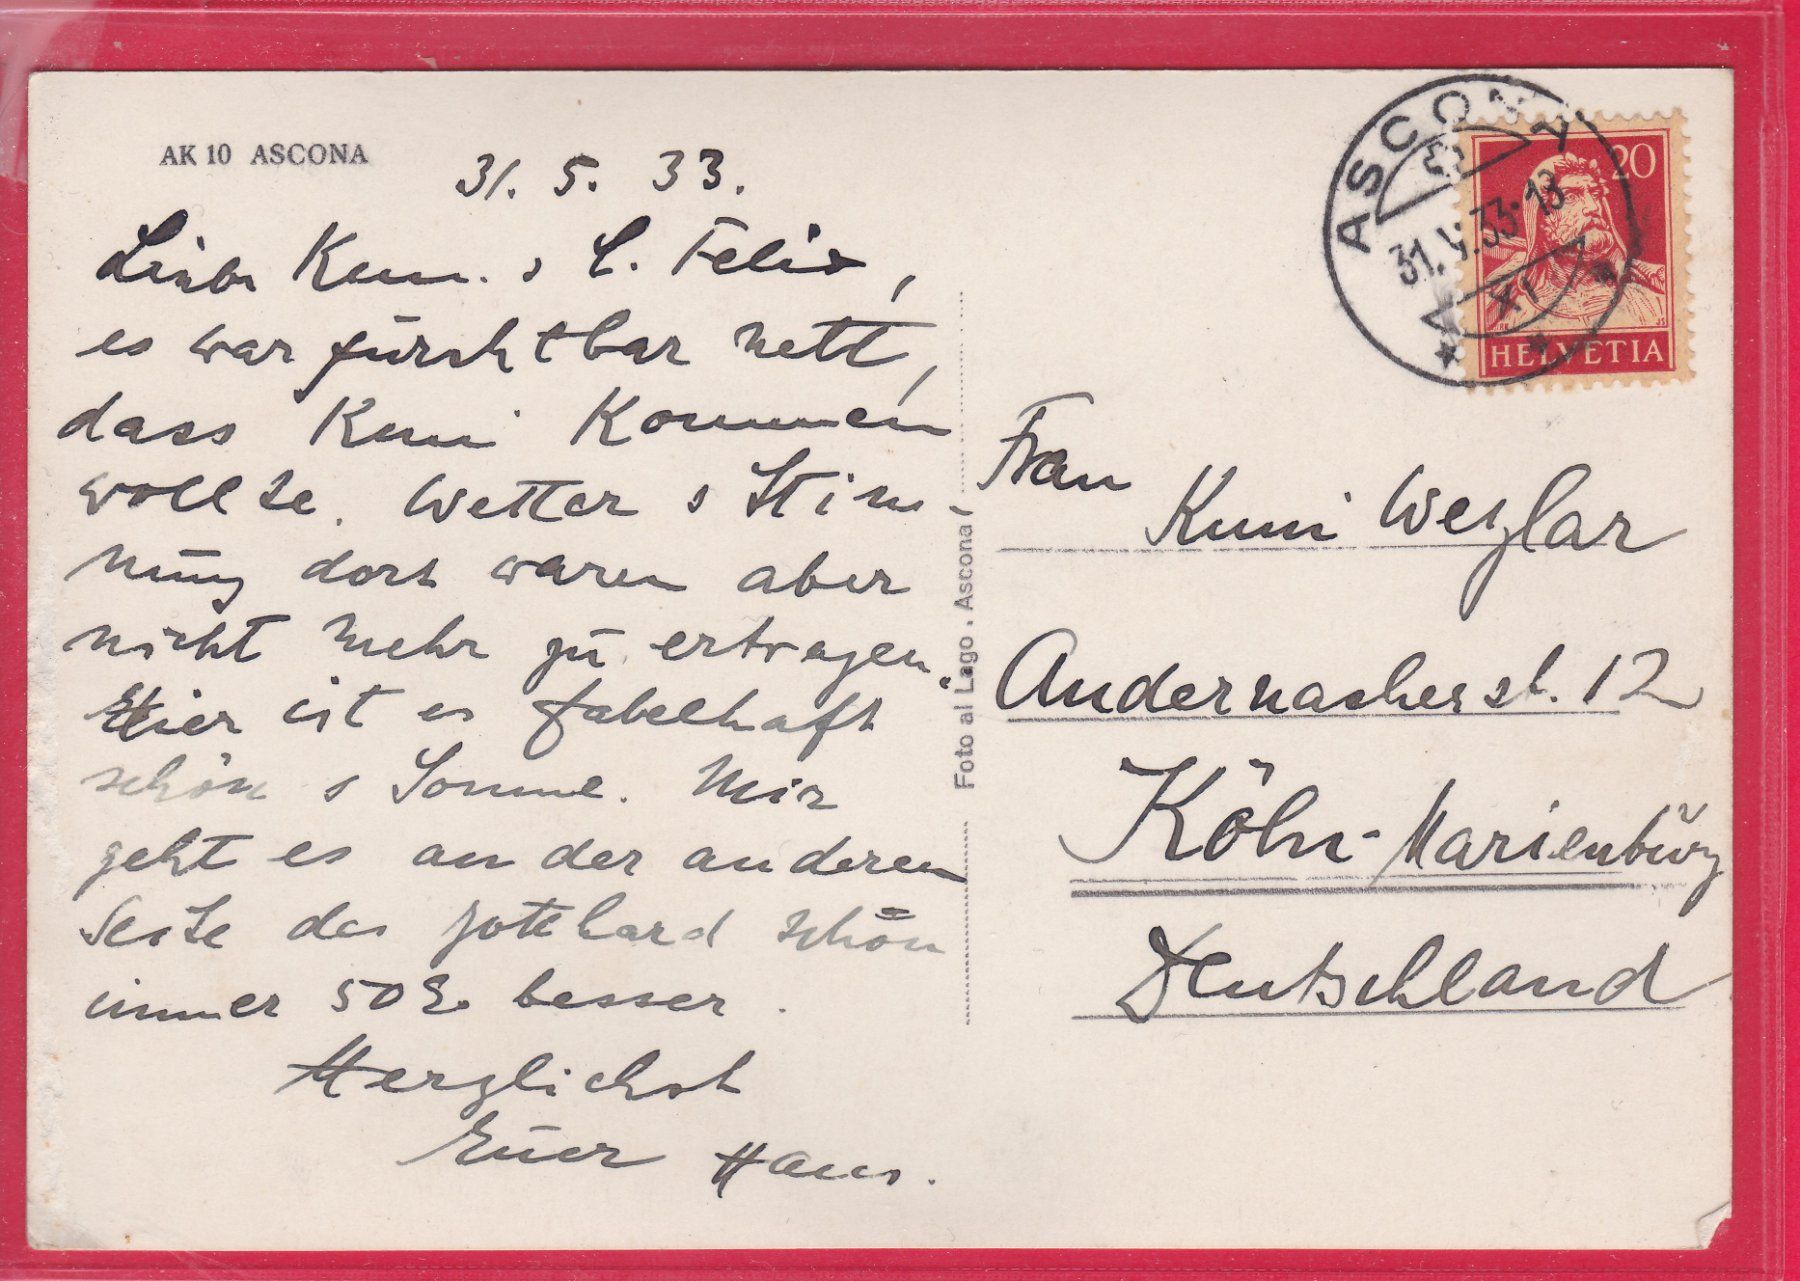 AK 10 ASCONA
31. 5. 33.
Liebe Kuni. s L. Felix,
es war furchtbar nett,
dass Kuni kommen
wollte. Wetter s Stim-
mung dort waren aber
nicht mehr zu ertragen.
Hier ist es fabelhaft
schön s Sonne. Mir
geht es an der anderen
Seite des Gotthard schon
immer 50% besser.
Herzlichst
Euer Hans.
Foto al Lago. Ascona
ASCONA
31.V.33-13
20
HELVETIA
Frau
Kuni Wezlar
Andernacherst. 12
Köln-Marienburg
Deutschland